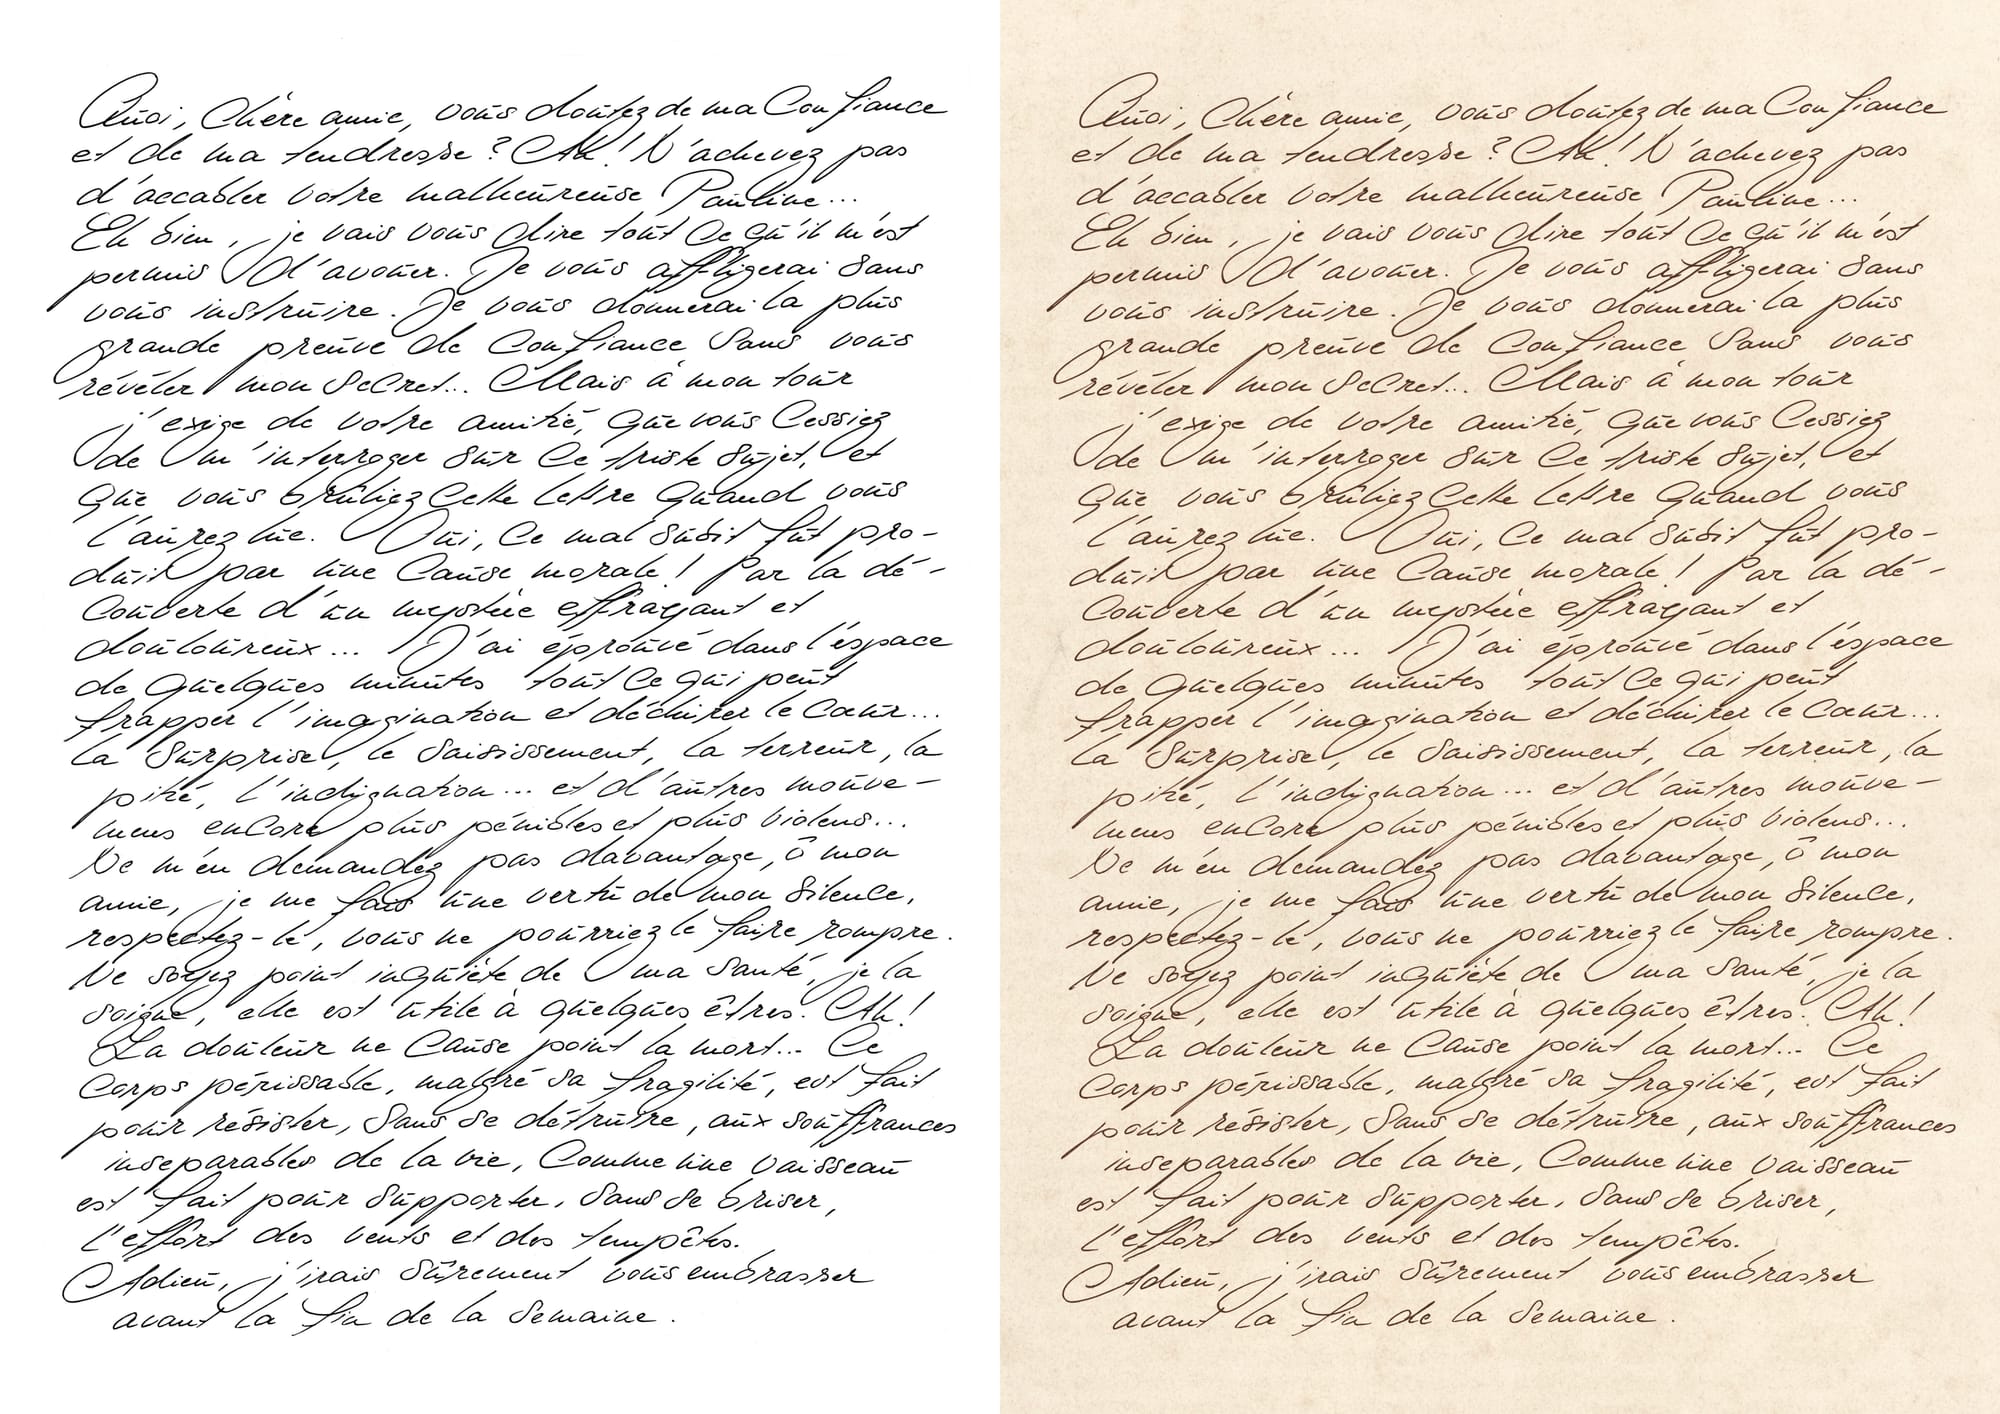 Quoi, chère amie, vous doutez de ma confiance
et de ma tendresse ? Ah ! N'achevez pas
d'accabler votre malheureuse Pauline...
Eh bien, je vais vous dire tout ce qu'il m'est
permis d'avouer. Je vous affligerai sans
vous instruire. Je vous donnerai la plus
grande preuve de confiance sans vous
révéler mon secret... Mais à mon tour
j'exige de votre amitié, que vous cessiez
de m'interroger sur ce triste sujet, et
que vous brûliez cette lettre quand vous
l'aurez lue. Oui, ce mal subit fut pro-
duit par une cause morale ! Par la dé-
couverte d'un mystère effrayant et
douloureux... J'ai éprouvé dans l'espace
de quelques minutes tout ce qui peut
frapper l'imagination et déchirer le cœur...
la surprise, le saisissement, la terreur, la
pitié, l'indignation... et d'autres mouve-
mens encore plus pénibles et plus violens...
Ne m'en demandez pas davantage, ô mon
amie, je me fais une vertu de mon silence,
respectez-le, vous ne pourriez le faire rompre.
Ne soyez point inquiète de ma santé, je la
soigne, elle est utile à quelques êtres. Ah !
La douleur ne cause point la mort... Ce
corps périssable, malgré sa fragilité, est fait
pour résister, sans se détruire, aux souffrances
inséparables de la vie, comme une vaisseau
est fait pour supporter, sans se briser,
l'effort des vents et des tempêtes.
Adieu, j'irais sûrement vous embrasser
avant la fin de la semaine.
Quoi, chère amie, vous doutez de ma confiance
et de ma tendresse ? Ah ! N'achevez pas
d'accabler votre malheureuse Pauline...
Eh bien, je vais vous dire tout ce qu'il m'est
permis d'avouer. Je vous affligerai sans
vous instruire. Je vous donnerai la plus
grande preuve de confiance sans vous
révéler mon secret... Mais à mon tour
j'exige de votre amitié, que vous cessiez
de m'interroger sur ce triste sujet, et
que vous brûliez cette lettre quand vous
l'aurez lue. Oui, ce mal subit fut pro-
duit par une cause morale ! Par la dé-
couverte d'un mystère effrayant et
douloureux... J'ai éprouvé dans l'espace
de quelques minutes tout ce qui peut
frapper l'imagination et déchirer le cœur...
la surprise, le saisissement, la terreur, la
pitié, l'indignation... et d'autres mouve-
mens encore plus pénibles et plus violens...
Ne m'en demandez pas davantage, ô mon
amie, je me fais une vertu de mon silence,
respectez-le, vous ne pourriez le faire rompre.
Ne soyez point inquiète de ma santé, je la
soigne, elle est utile à quelques êtres. Ah !
La douleur ne cause point la mort... Ce
corps périssable, malgré sa fragilité, est fait
pour résister, sans se détruire, aux souffrances
inséparables de la vie, comme une vaisseau
est fait pour supporter, sans se briser,
l'effort des vents et des tempêtes.
Adieu, j'irais sûrement vous embrasser
avant la fin de la semaine.